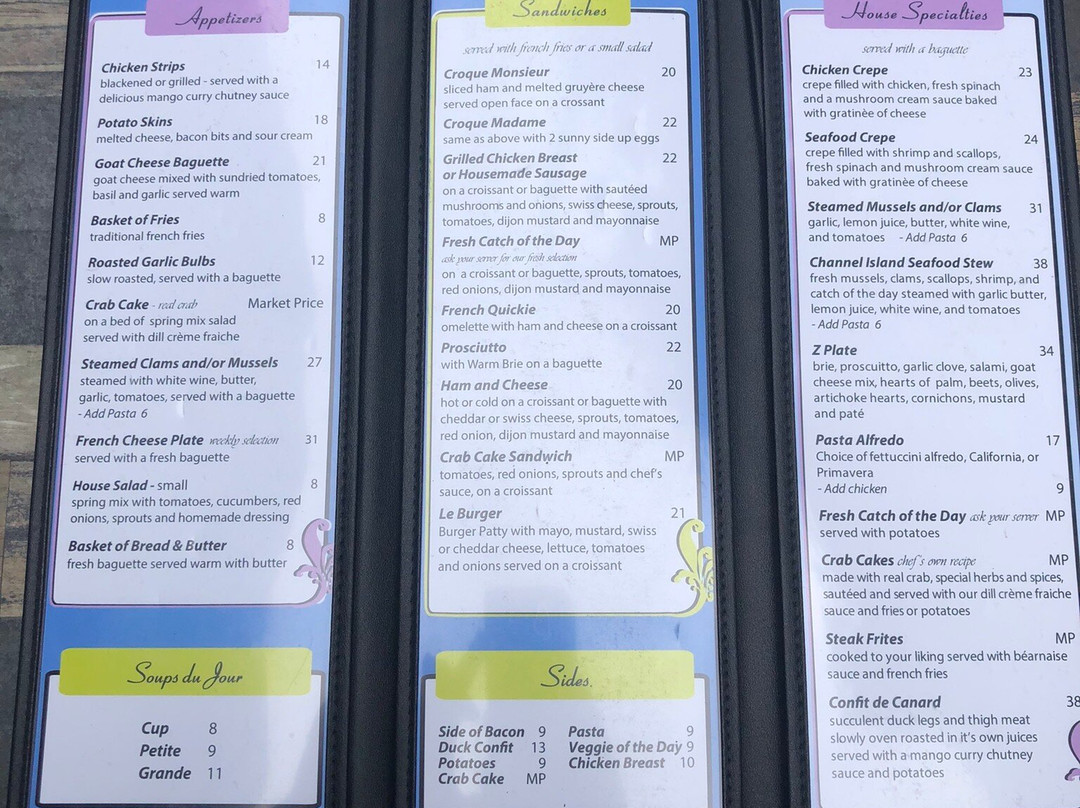 Appetizers
Chicken Strips 14
blackened or grilled - served with a
delicious mango curry chutney sauce
Potato Skins 18
melted cheese, bacon bits and sour cream
Goat Cheese Baguette 21
goat cheese mixed with sundried tomatoes,
basil and garlic served warm
Basket of Fries 8
traditional french fries
Roasted Garlic Bulbs 12
slow roasted, served with a baguette
Crab Cake - real crab Market Price
on a bed of spring mix salad
served with dill crème fraiche
Steamed Clams and/or Mussels 27
steamed with white wine, butter,
garlic, tomatoes, served with a baguette
- Add Pasta 6
French Cheese Plate weekly selection 31
served with a fresh baguette
House Salad - small 8
spring mix with tomatoes, cucumbers, red
onions, sprouts and homemade dressing
Basket of Bread & Butter 8
fresh baguette served warm with butter
Soups du Jour
Cup 8
Petite 9
Grande 11
Sandwiches
served with french fries or a small salad
Croque Monsieur 20
sliced ham and melted gruyère cheese
served open face on a crossant
Croque Madame 22
same as above with 2 sunny side up eggs
Grilled Chicken Breast 22
or Housemade Sausage
on a croissant or baguette with sautéed
mushrooms and onions, swiss cheese, sprouts,
tomatoes, dijon mustard and mayonnaise
Fresh Catch of the Day MP
ask your server for our fresh selection
on a croissant or baguette, sprouts, tomatoes,
red onions, dijon mustard and mayonnaise
French Quickie 20
omelette with ham and cheese on a croissant
Prosciutto 22
with Warm Brie on a baguette
Ham and Cheese 20
hot or cold on a croissant or baguette with
cheddar or swiss cheese, sprouts, tomatoes,
red onion, dijon mustard and mayonnaise
Crab Cake Sandwich MP
tomatoes, red onions, sprouts and chef's
sauce, on a croissant
Le Burger 21
Burger Patty with mayo, mustard, swiss
or cheddar cheese, lettuce, tomatoes
and onions served on a croissant
Sides.
Side of Bacon 9 Pasta 9
Duck Confit 13 Veggie of the Day 9
Potatoes 9 Chicken Breast 10
Crab Cake MP
House Specialties
served with a baguette
Chicken Crepe 23
crepe filled with chicken, fresh spinach
and a mushroom cream sauce baked
with gratinèe of cheese
Seafood Crepe 24
crepe filled with shrimp and scallops,
fresh spinach and mushroom cream sauce
baked with gratinèe of cheese
Steamed Mussels and/or Clams 31
garlic, lemon juice, butter, white wine,
and tomatoes - Add Pasta 6
Channel Island Seafood Stew 38
fresh mussels, clams, scallops, shrimp, and
catch of the day steamed with garlic butter,
lemon juice, white wine, and tomatoes
- Add Pasta 6
Z Plate 34
brie, proscuitto, garlic clove, salami, goat
cheese mix, hearts of palm, beets, olives,
artichoke hearts, cornichons, mustard
and paté
Pasta Alfredo 17
Choice of fettuccini alfredo, California, or
Primavera
- Add chicken 9
Fresh Catch of the Day ask your server MP
served with potatoes
Crab Cakes chef's own recipe MP
made with real crab, special herbs and spices,
sautéed and served with our dill crème fraiche
sauce and fries or potatoes
Steak Frites MP
cooked to your liking served with béarnaise
sauce and french fries
Confit de Canard 38
succulent duck legs and thigh meat
slowly oven roasted in it's own juices
served with a mango curry chutney
sauce and potatoes